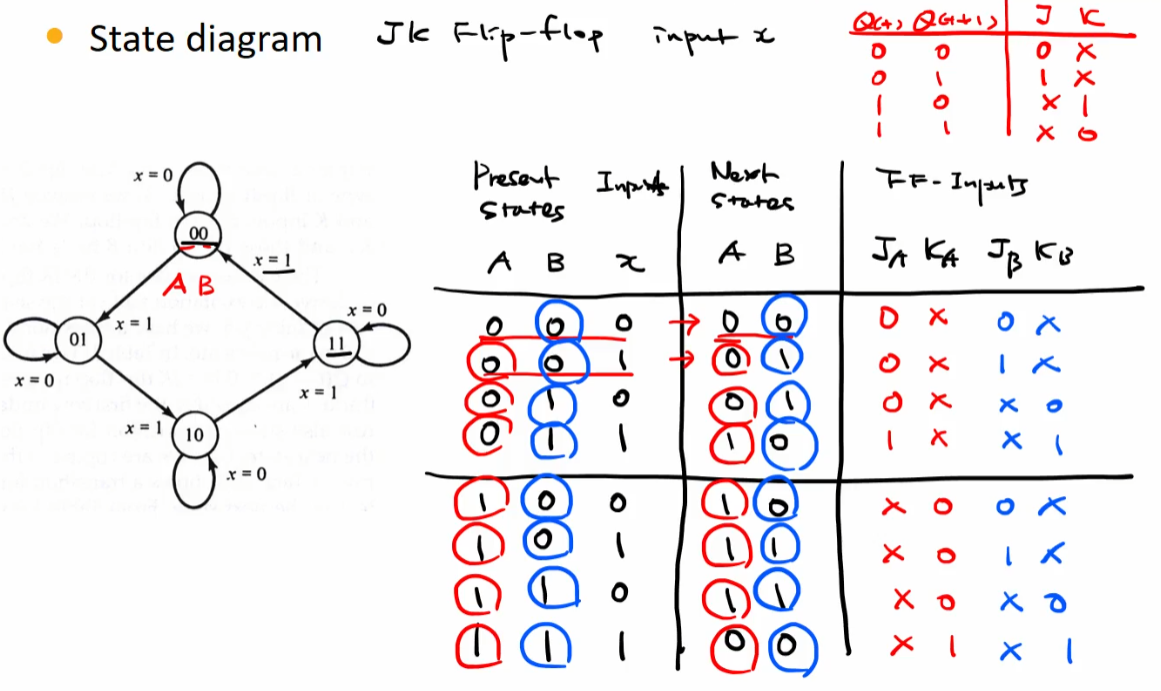 • State diagram JK Flip-flop input x
Q(t) Q(t+1) J K
0 0 0 X
0 1 1 X
1 0 X 1
1 1 X 0
x = 0
00
A B
x = 1
x = 1
x = 0
01
11
x = 0
x = 1
x = 1
10
x = 0
Present States Inputs Next States FF-Inputs
A B x A B JA KA JB KB
0 0 0 → 0 0 0 X 0 X
0 0 1 → 0 1 0 X 1 X
0 1 0 0 1 0 X X 0
0 1 1 1 0 1 X X 1
1 0 0 1 0 X 0 0 X
1 0 1 1 1 X 0 1 X
1 1 0 1 1 X 0 X 0
1 1 1 0 0 X 1 X 1